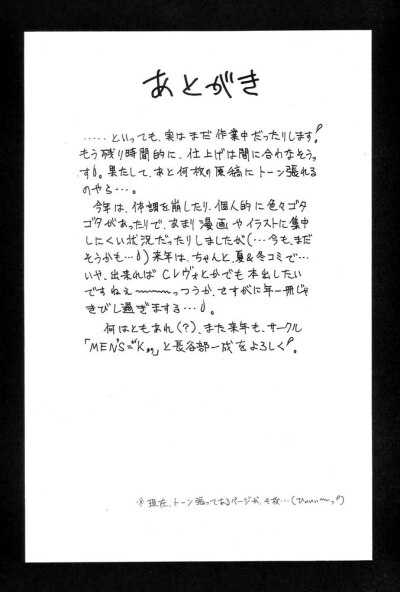 あとがき
・・・・・といっても、実はまだ作業中だったりします!
もう残り時間的に、仕上げは間に合わなそうっ
す。果たして、あと何枚の原稿にトーン張れる
のやら・・・。
今年は、体調を崩したり、個人的に色々ゴタ
ゴタがあったりで、あまり漫画やイラストに集中
しにくい状況だったりしましたが(・・・今も、まだ
そうかも・・・)来年は、ちゃんと、夏&冬コミで・・・
いや、出来ればCレヴォとかでも本出したい
ですねぇ〜〜〜〜っつうか、さすがに年一冊じゃ
きびし過ぎまする・・・。
何はともあれ(?)、また来年も、サークル
「MEN'S="K」と長谷部一成をよろしく!
※現在、トーン張ってあるページが、